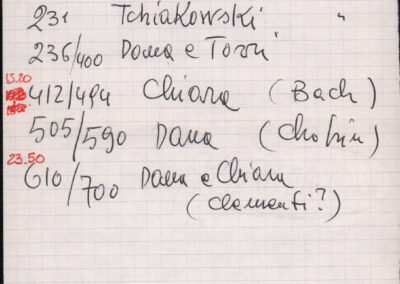 231 Tchiakowski "
236/400 Dana e Torri
13.20
412/494 Chiara (Bach)
505/590 Dana (Chopin)
23.50
610/700 Dana e Chiara
(Clementi?)